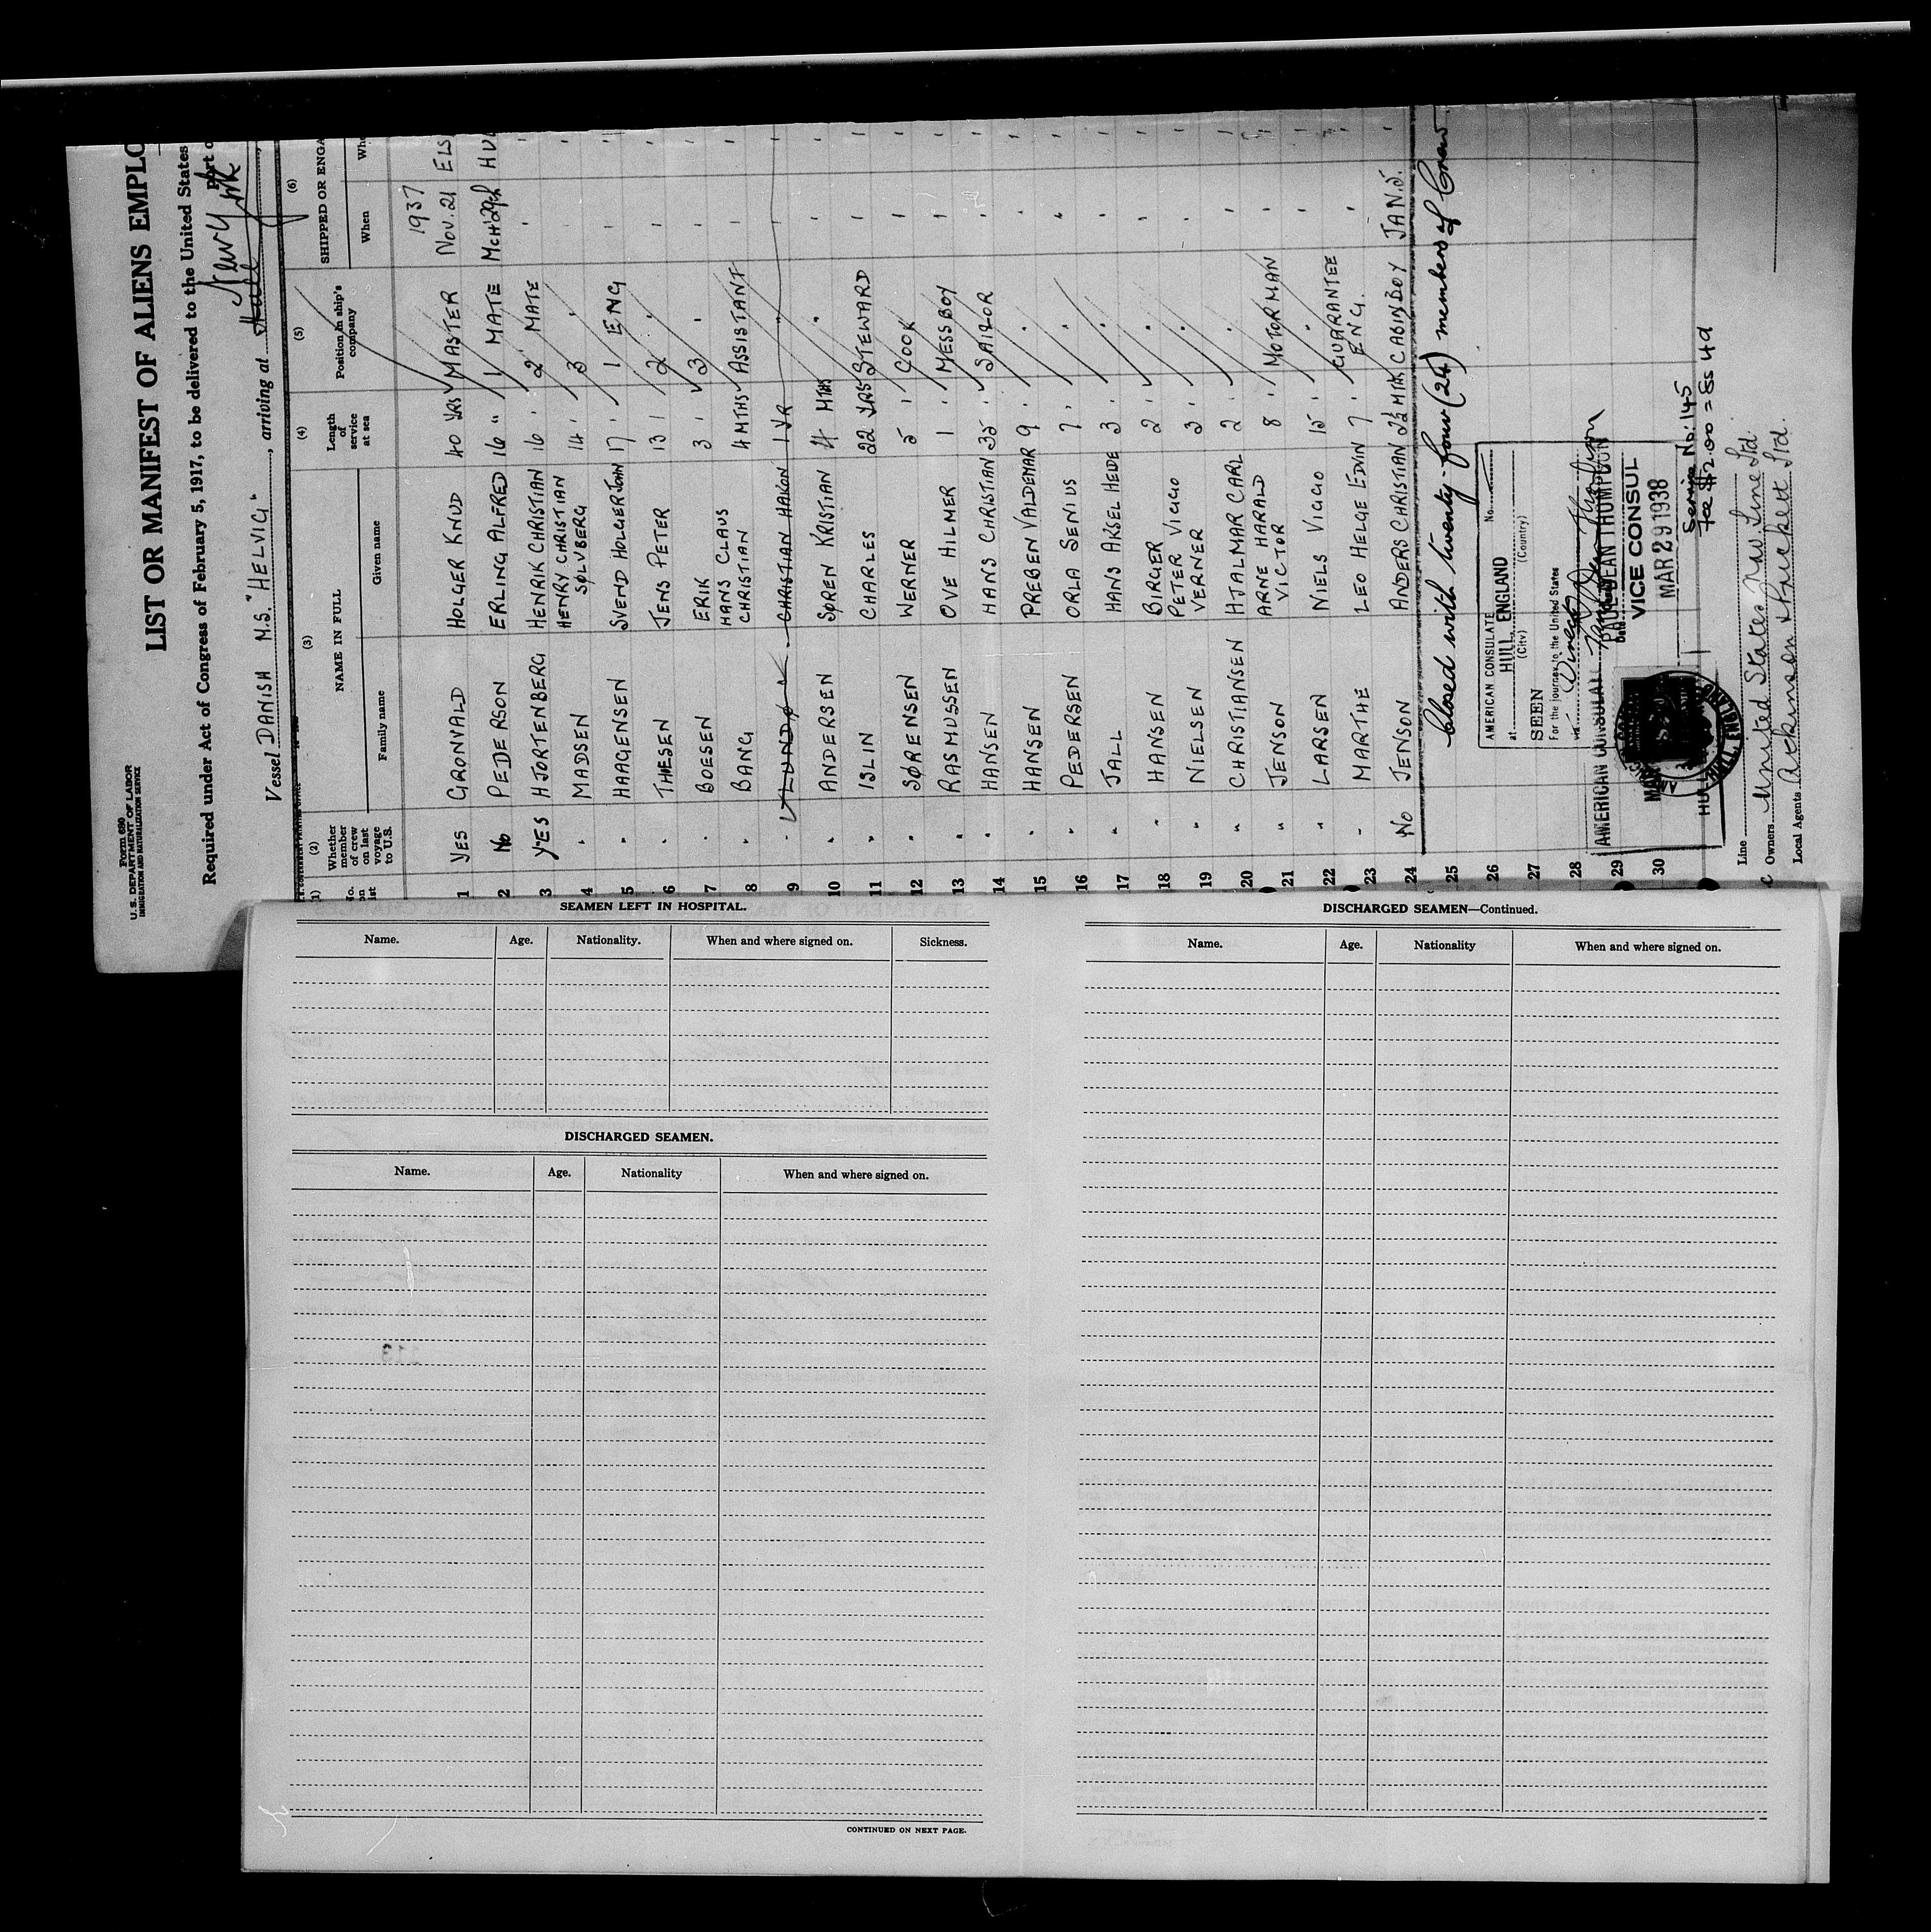 Form 680
U. S. DEPARTMENT OF LABOR
IMMIGRATION AND NATURALIZATION SERVICE
LIST OR MANIFEST OF ALIENS EMPLO
Required under Act of Congress of February 5, 1917, to be delivered to the United States
Vessel DANISH M.S. "HELVIG", arriving at Hull New York
part o
(1) (2) (3) (4) (5) (6)
No. on list
Whether member of crew on last voyage to U.S.
NAME IN FULL
Family name Given name
Length of service at sea
Position in ship's company
SHIPPED OR ENGA
When Whe
1937
1 YES GRONVALD HOLGER KNUD 40 YRS MASTER Nov. 21 ELS
2 No PEDERSON ERLING ALFRED 16 " 1 MATE MCH 29th HUL
3 YES HJORTENBERG HENRIK CHRISTIAN 16 " 2 MATE "
4 " MADSEN HENRY CHRISTIAN SØLVBERG 14 " 3 " "
5 " HAAGENSEN SVEND HOLGER JOHN 17 " 1 ENG "
6 " THESEN JENS PETER 13 " 2 " "
7 " BOESEN ERIK 3 " 3 " "
8 " BANG HANS CLAUS CHRISTIAN 4 MTHS ASSISTANT "
9 " LUNDØ CHRISTIAN HAKON 1 YR " "
10 " ANDERSEN SØREN KRISTIAN 4 MTHS " "
11 " ISLIN CHARLES 22 YRS STEWARD "
12 " SØRENSEN WERNER 5 " COOK "
13 " RASMUSSEN OVE HILMER 1 " MESSBOY "
14 " HANSEN HANS CHRISTIAN 35 " SAILOR "
15 " HANSEN PREBEN VALDEMAR 9 " " "
16 " PEDERSEN ORLA SENIUS 7 " " "
17 " JALL HANS AKSEL HEIDE 3 " " "
18 " HANSEN BIRGER 2 " " "
19 " NIELSEN PETER VIGGO VERNER 3 " " "
20 " CHRISTIANSEN HJALMAR CARL 2 " " "
21 " JENSON ARNE HARALD VICTOR 8 " MOTORMAN "
22 " LARSEN NIELS VIGGO 15 " " "
23 " MARTHE LEO HELGE EDVIN 7 " GUARANTEE ENG. "
24 No JENSON ANDERS CHRISTIAN 2½ MTHS CABINBOY JAN. 5.
25
26
27
28
29
30
Closed with twenty-four (24) members of Crew.
AMERICAN CONSULATE
at HULL, ENGLAND No.
(City) (Country)
SEEN
For the journey to the United States
via Direct
PAUL DEAN THOMPSON
Date
VICE CONSUL
MAR 29 1938
AMERICAN CONSULAR
HULL, ENGLAND
Service No: 145
Fee $2.00 = 8s 4d
Line
Owners United States Nav. Line Ltd.
Local Agents Atkinson & Prickett Ltd.
SEAMEN LEFT IN HOSPITAL.
Name. Age. Nationality. When and where signed on. Sickness.
DISCHARGED SEAMEN.
Name. Age. Nationality When and where signed on.
CONTINUED ON NEXT PAGE.
DISCHARGED SEAMEN—Continued.
Name. Age. Nationality When and where signed on.